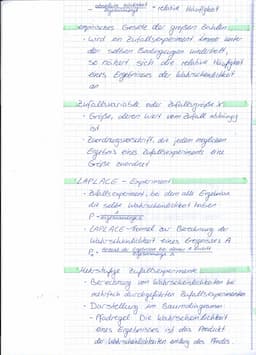 absolute Häufigkeit
- Ergebnismenge = relative Häufigkeit
empirisches Gesetz der großen Zahlen
- wird ein Zufallsexperiment immer unter
den selben Bedingungen wiederholt,
so nähert sich die relative Häufigkeit
eines Ergebnisses der Wahrscheinlichkeit
an
Zufallsvariable oder Zufallsgröße X
- Größe, deren Wert vom Zufall abhängig
ist
- Zuordnungsvorschrift, die jedem möglichen
Ergebnis eines Zufallsexperiments eine
Größe zuordnet
LAPLACE - Experiment
- Zufallsexperiment, bei dem alle Ergebnisse
die selbe Wahrscheinlichkeit haben
P = 1
Ergebnismenge
- LAPLACE-Formel zur Berechnung der
Wahrscheinlichkeit eines Ereignisses A
Anzahl der Ergebnisse bei denen A Eintritt
P =
Ergebnismenge
Mehrstufige Zufallsexperimente
- Berechnung von Wahrscheinlichkeiten bei
mehrfach durchgeführten Zufallsexperimenten
- Darstellung im Baumdiagramm
- Pfadregel: Die Wahrscheinlichkeit
eines Ergebnisses ist das Produkt
der Wahrscheinlichkeiten entlang des Pfades.